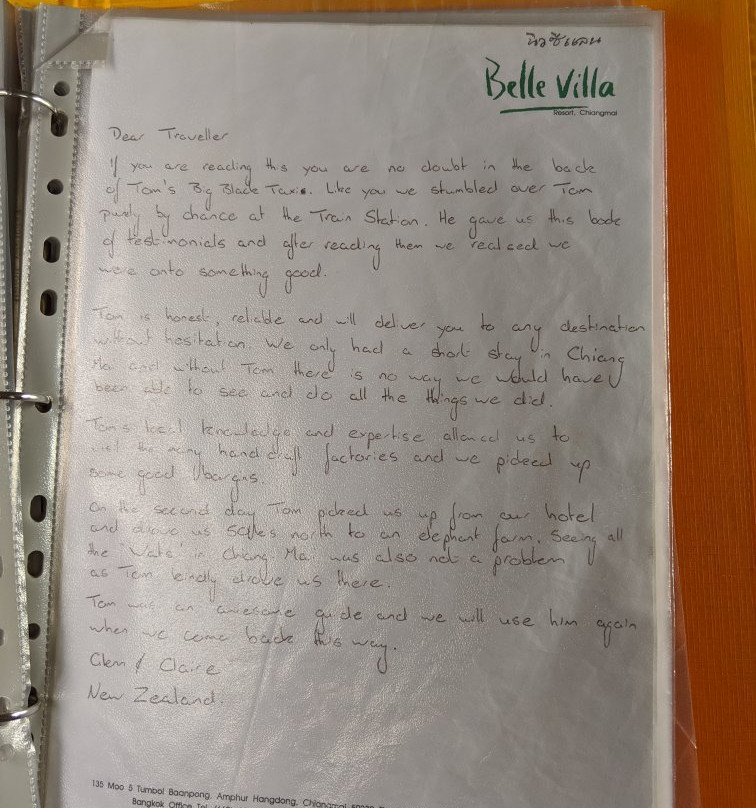 นิวซีแลน
Belle Villa
Resort, Chiangmai
Dear Traveller
If you are reading this you are no doubt in the back
of Tom's Big Black Taxis. Like you we stumbled over Tom
purely by chance at the Train Station. He gave us this book
of testimonials and after reading them we realised we
were onto something good.
Tom is honest, reliable and will deliver you to any destination
without hesitation. We only had a short stay in Chiang
Mai and without Tom there is no way we would have
been able to see and do all the things we did.
Tom's local knowledge and expertise allowed us to
visit the many hand craft factories and we picked up
some good bargns.
On the second day Tom picked us up from our hotel
and drove us north to an elephant farm. Seeing all
the 'Wats' in Chiang Mai was also not a problem
as Tom kindly drove us there.
Tom was an awesome guide and we will use him again
when we come back this way.
Clem & Claire
New Zealand.
135 Moo 5 Tumbol Baanpong, Amphur Hangdong, Chiangmai
Bangkok Office Tel.